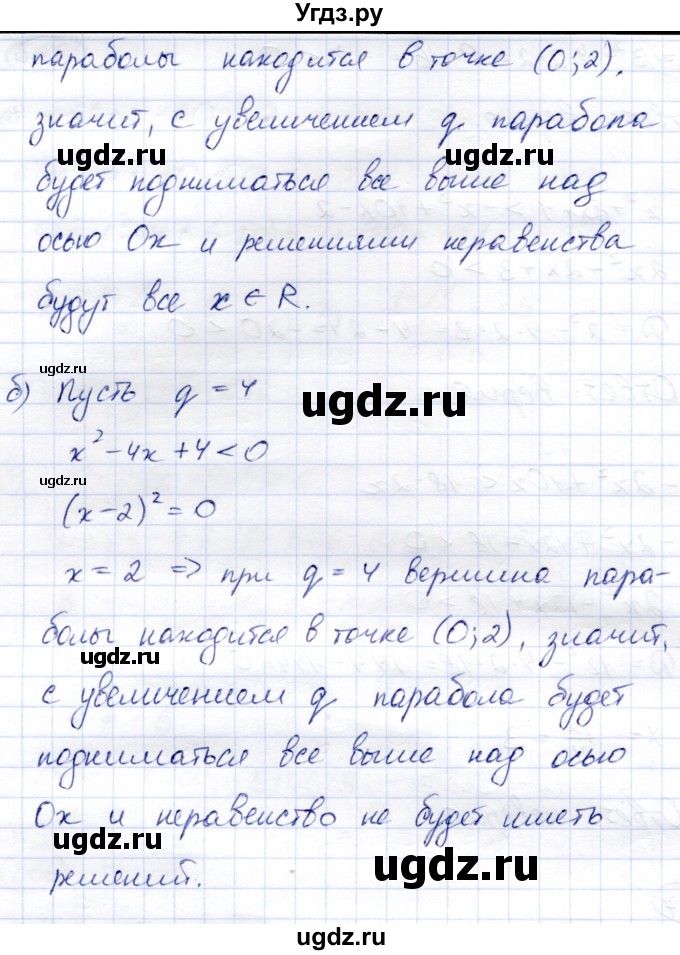 Угдз.ру
параболы находится в точке (0;2).
значит, с увеличением q парабола
ugdz.ru ugdz.ru
будет подниматься все выше над
осью Ox и решениями неравенства
будут все x ∈ R.
ugdz.ru
б) Пусть q = 4
ugdz.ru
x² - 4x + 4 < 0
ugdz.ru
(x - 2)² = 0
x = 2 => при q = 4 вершина пара-
болы находится в точке (0;2), значит,
ugdz.ru
с увеличением q парабола будет
подниматься все выше над осью
Ox и неравенство не будет иметь
ugdz.ru ugdz.ru
решений.
ugdz.ru